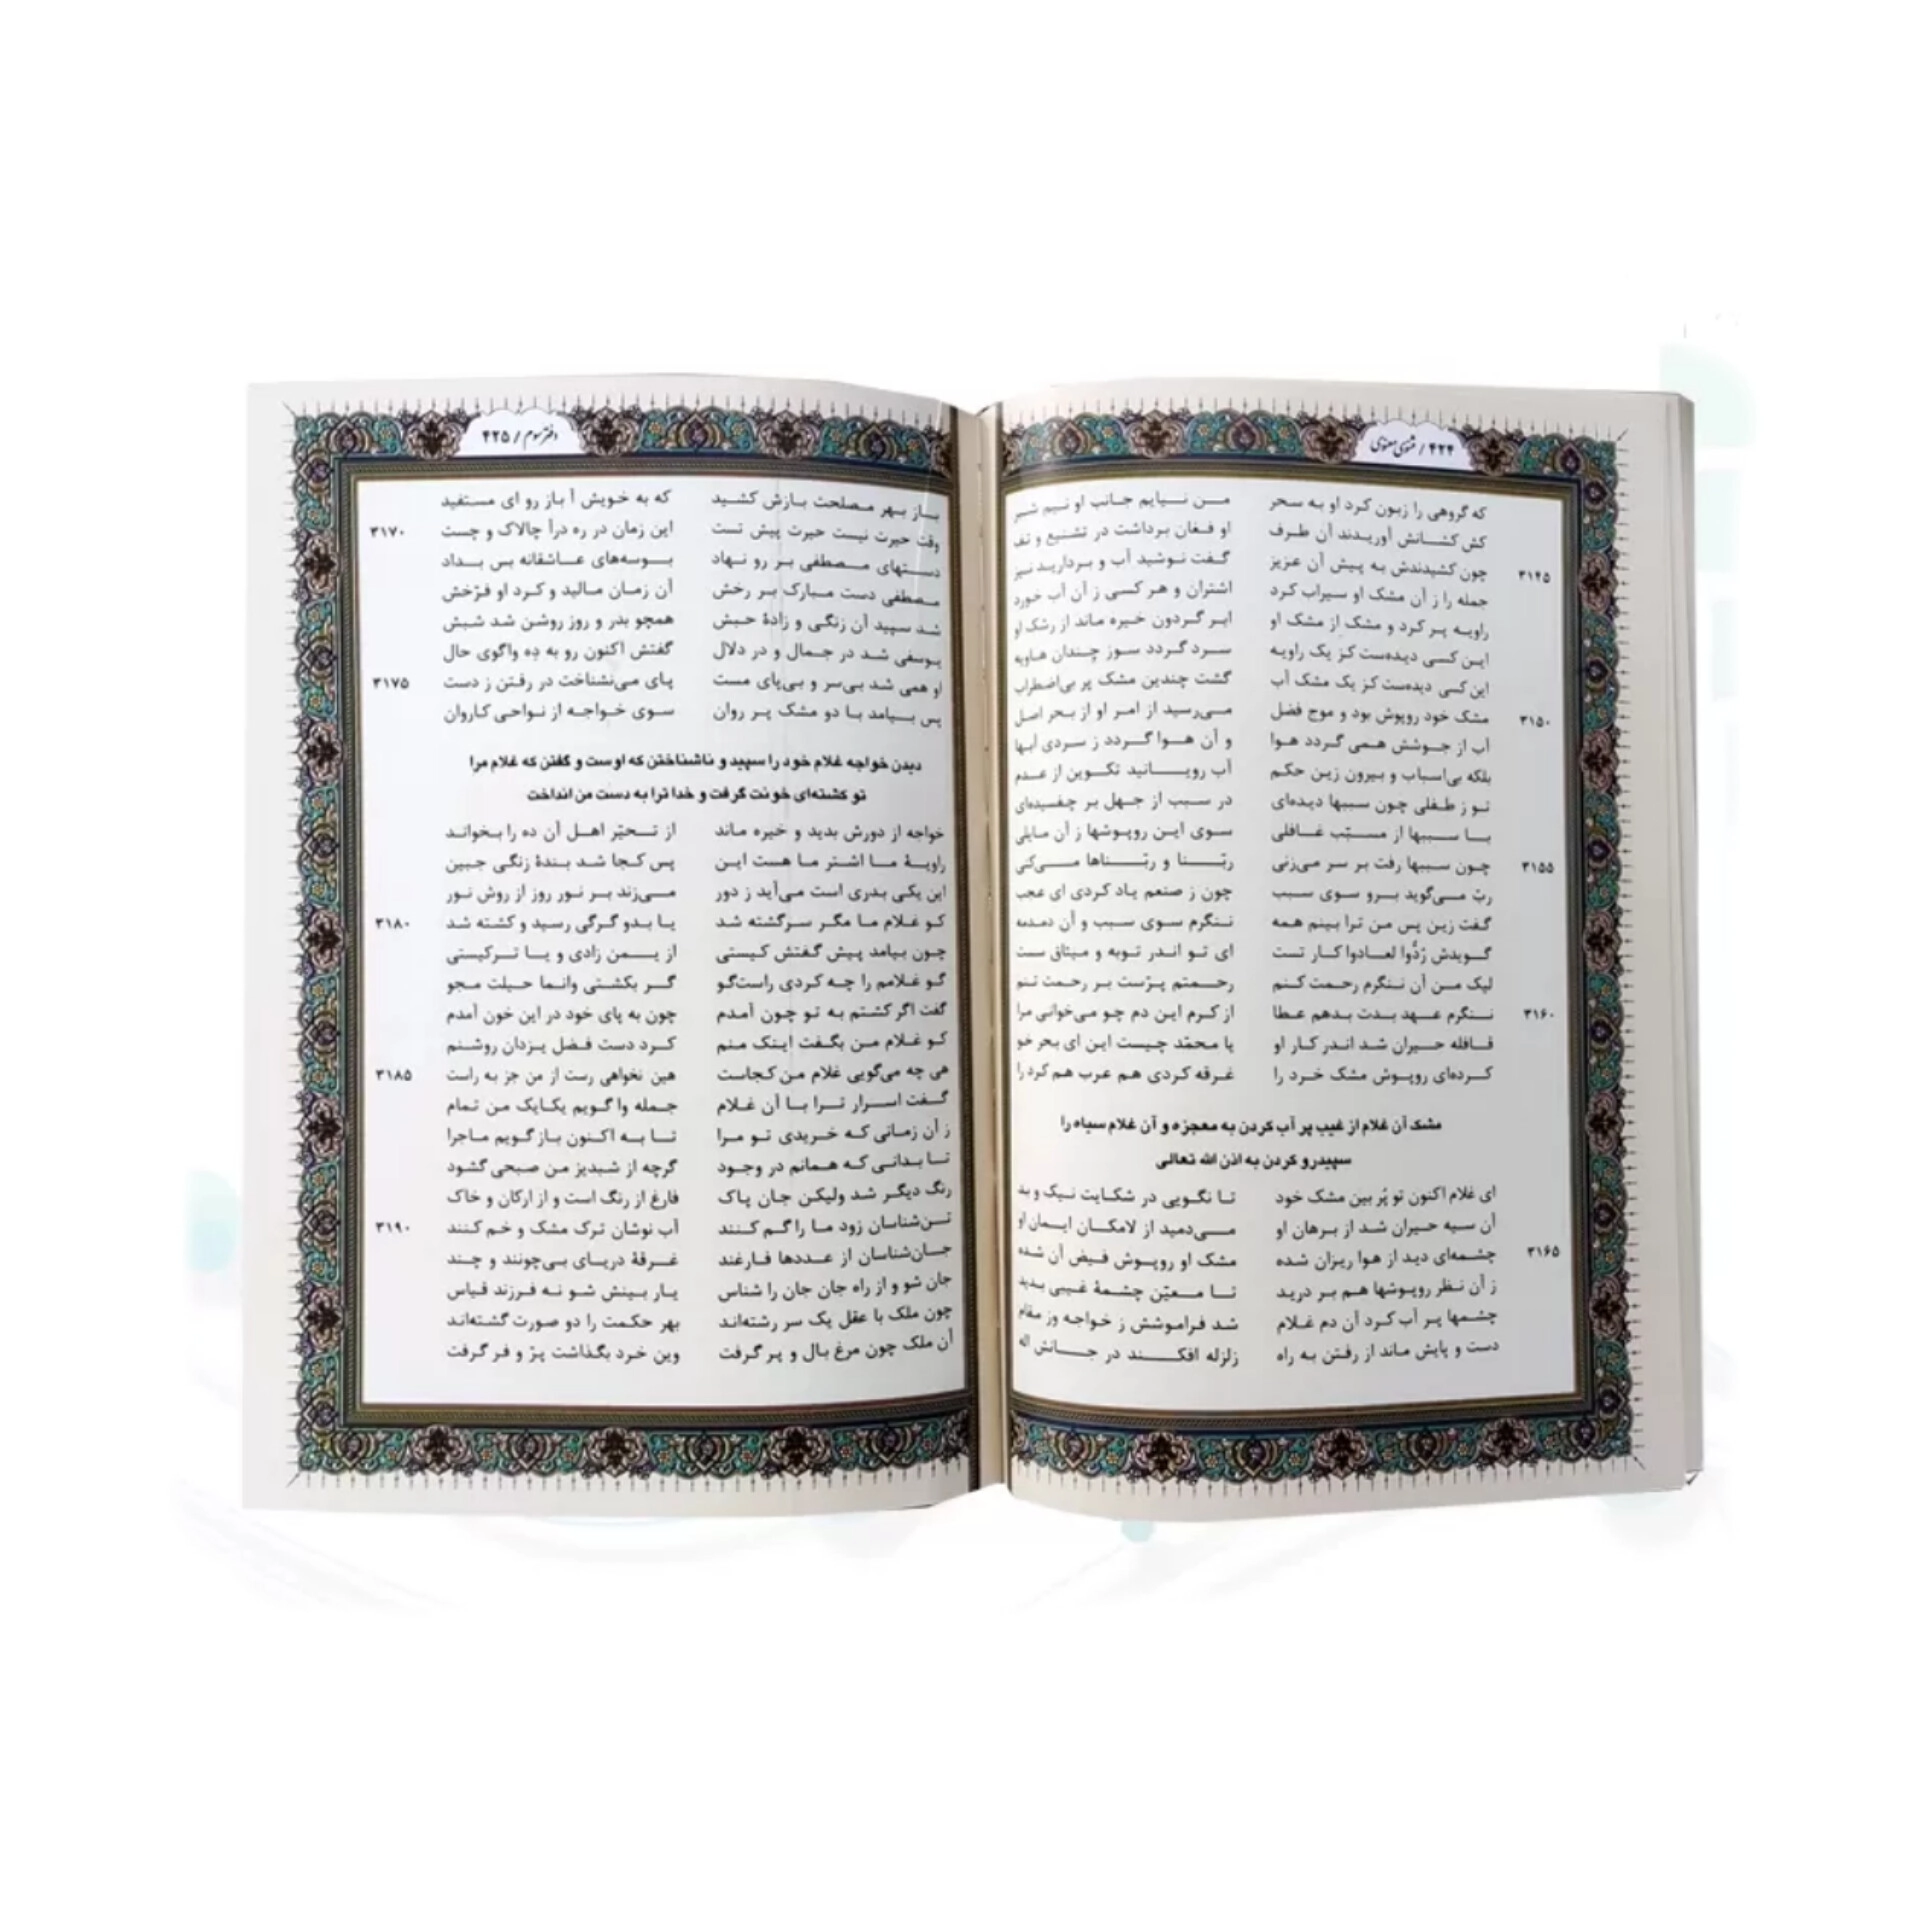 ۴۲۴ / مثنوی معنوی
که گروهی را زبون کرد او به سحر من نیایم جانب او نیم شبر
کش کشانش آوریدند آن طرف او فغان برداشت در تشنیع و تف
۳۱۴۵ چون کشیدندش به پیش آن عزیز گفت نوشید آب و بردارید نیز
جمله را ز آن مشک او سیراب کرد اشتران و هر کسی ز آن آب خورد
راویه پر کرد و مشک از مشک او ابر گردون خیره ماند از رشک او
این کسی دیده‌ست کز یک راویه سرد گردد سوز چندان هاویه
این کسی دیده‌ست کز یک مشک آب گشت چندین مشک پر بی‌اضطراب
۳۱۵۰ مشک خود روپوش بود و موج فضل می‌رسید از امر او از بحر اصل
آب از جوشش همی گردد هوا و آن هوا گردد ز سردی آبها
بلکه بی‌اسباب و بیرون زین حکم آب رویانید تکوین از عدم
تو ز طفلی چون سببها دیده‌ای در سبب از جهل بر چفسیده‌ای
با سببها از مسبّب غافلی سوی این روپوشها ز آن مایلی
۳۱۵۵ چون سببها رفت بر سر می‌زنی ربّنا و ربّناها می‌کنی
ربّ می‌گوید برو سوی سبب چون ز صنعم یاد کردی ای عجب
گفت زین پس من ترا بینم همه ننگرم سوی سبب و آن دمدمه
گویدش رُدُّوا لعادوا کار تست ای تو اندر توبه و میثاق سست
لیک من آن ننگرم رحمت کنم رحمتم پرّست بر رحمت تنم
۳۱۶۰ ننگرم عهد بدت بدهم عطا از کرم این دم چو می‌خوانی مرا
قافله حیران شد اندر کار او یا محمّد چیست این ای بحر خو
کرده‌ای روپوش مشک خرد را غرقه کردی هم عرب هم کرد را
مشک آن غلام از غیب پر آب کردن به معجزه و آن غلام سیاه را
سپیدرو کردن به اذن الله تعالی
ای غلام اکنون تو پُر بین مشک خود تا نگویی در شکایت نیک و بد
آن سیه حیران شد از برهان او می‌دمید از لامکان ایمان او
۳۱۶۵ چشمه‌ای دید از هوا ریزان شده مشک او روپوش فیض آن شده
ز آن نظر روپوشها هم بر درید تا معیّن چشمهٔ غیبی بدید
چشمها پر آب کرد آن دم غلام شد فراموشش ز خواجه وز مقام
دست و پایش ماند از رفتن به راه زلزله افکند در جانش اله
دفتر سوم / ۴۲۵
باز بهر مصلحت بازش کشید که به خویش آ باز رو ای مستفید
۳۱۷۰ وقت حیرت نیست حیرت پیش تست این زمان در ره درآ چالاک و چست
دستهای مصطفی بر رو نهاد بوسه‌های عاشقانه بس بداد
مصطفی دست مبارک بر رخش آن زمان مالید و کرد او فرّخش
شد سپید آن زنگی و زادهٔ حبش همچو بدر و روز روشن شد شبش
یوسفی شد در جمال و در دلال گفتش اکنون رو به دِه واگوی حال
۳۱۷۵ او همی شد بی‌سر و بی‌پای مست پای می‌نشناخت در رفتن ز دست
پس بیامد با دو مشک پر روان سوی خواجه از نواحی کاروان
دیدن خواجه غلام خود را سپید و ناشناختن که اوست و گفتن که غلام مرا
تو کشته‌ای خونت گرفت و خدا ترا به دست من انداخت
خواجه از دورش بدید و خیره ماند از تحیّر اهل آن ده را بخواند
راویهٔ ما اشتر ما هست این پس کجا شد بندهٔ زنگی جبین
این یکی بدری است می‌آید ز دور می‌زند بر نور روز از روش نور
۳۱۸۰ کو غلام ما مگر سرگشته شد یا بدو گرگی رسید و کشته شد
چون بیامد پیش گفتش کیستی از یمن زادی و یا ترکیستی
گو غلامم را چه کردی راست‌گو گر بکشتی وانما حیلت مجو
گفت اگر کشتم به تو چون آمدم چون به پای خود در این خون آمدم
کو غلام من بگفت اینک منم کرد دست فضل یزدان روشنم
۳۱۸۵ هی چه می‌گویی غلام من کجاست هین نخواهی رست از من جز به راست
گفت اسرار ترا با آن غلام جمله وا گویم یکایک من تمام
ز آن زمانی که خریدی تو مرا تا به اکنون باز گویم ماجرا
تا بدانی که همانم در وجود گرچه از شبدیز من صبحی گشود
رنگ دیگر شد ولیکن جان پاک فارغ از رنگ است و از ارکان و خاک
۳۱۹۰ تن‌شناسان زود ما را گم کنند آب نوشان ترک مشک و خم کنند
جان‌شناسان از عددها فارغند غرقهٔ دریای بی‌چونند و چند
جان شو و از راه جان جان را شناس یار بینش شو نه فرزند قیاس
چون ملک با عقل یک سر رشته‌اند بهر حکمت را دو صورت گشته‌اند
آن ملک چون مرغ بال و پر گرفت وین خرد بگذاشت پرّ و فر گرفت